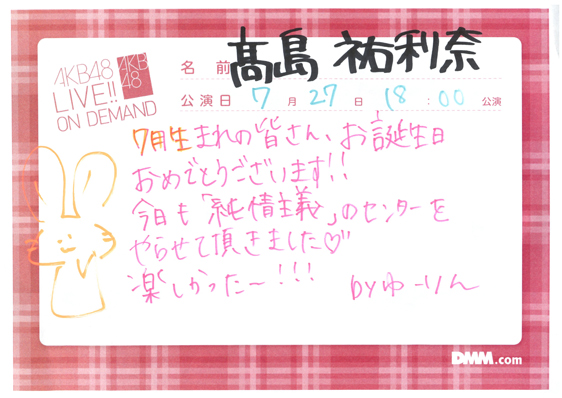 AKB48
LIVE!!
ON DEMAND
AKB
48
名前 髙島 祐利奈
公演日 7月27日 18:00公演
7月生まれの皆さん、お誕生日
おめでとうございます!!
今日も「純情主義」のセンターを
やらせて頂きました♡
楽しかった〜!!!
byゆーりん
DMM.com